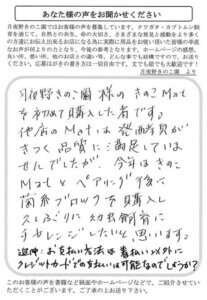 あなた様の声をお聞かせください
月夜野きのこ園ではお客様の声を募集しています。クワガタ・カブトムシ飼
育を通じて、自然との共生、命の大切さ、さまざまな発見と感動をより多く
の方達にお伝え出来るお店になる為に実際に商品をお使い頂いた皆様の率直
なお声が何よりの力となり、今後の参考となります。ホームページの感想、
良い所、悪い所、他のお店との違い等、どんな事でも結構ですのでお送り下
さい。応募はがきの書き方は一切自由です。文でも絵でも大歓迎です!
月夜野きのこ園 より
月夜野きのこ園様のきのこMat
を初めて購入した者です。
他店のMatは発酵臭が
きつく品質に満足していま
せんでしたが、今年はきのこ
Matとペアリング後で
菌糸ブロックを購入し
久しぶりに幼虫飼育に
チャレンジしたいと思います。
追伸:お支払い方法は着払い以外に
クレジットカードの支払いは可能なのでしょうか?
このお客様の声を書籍など紙面やホームページなどで、ご紹介させて
いただくことがございます。ご了承の上お送り下さい。